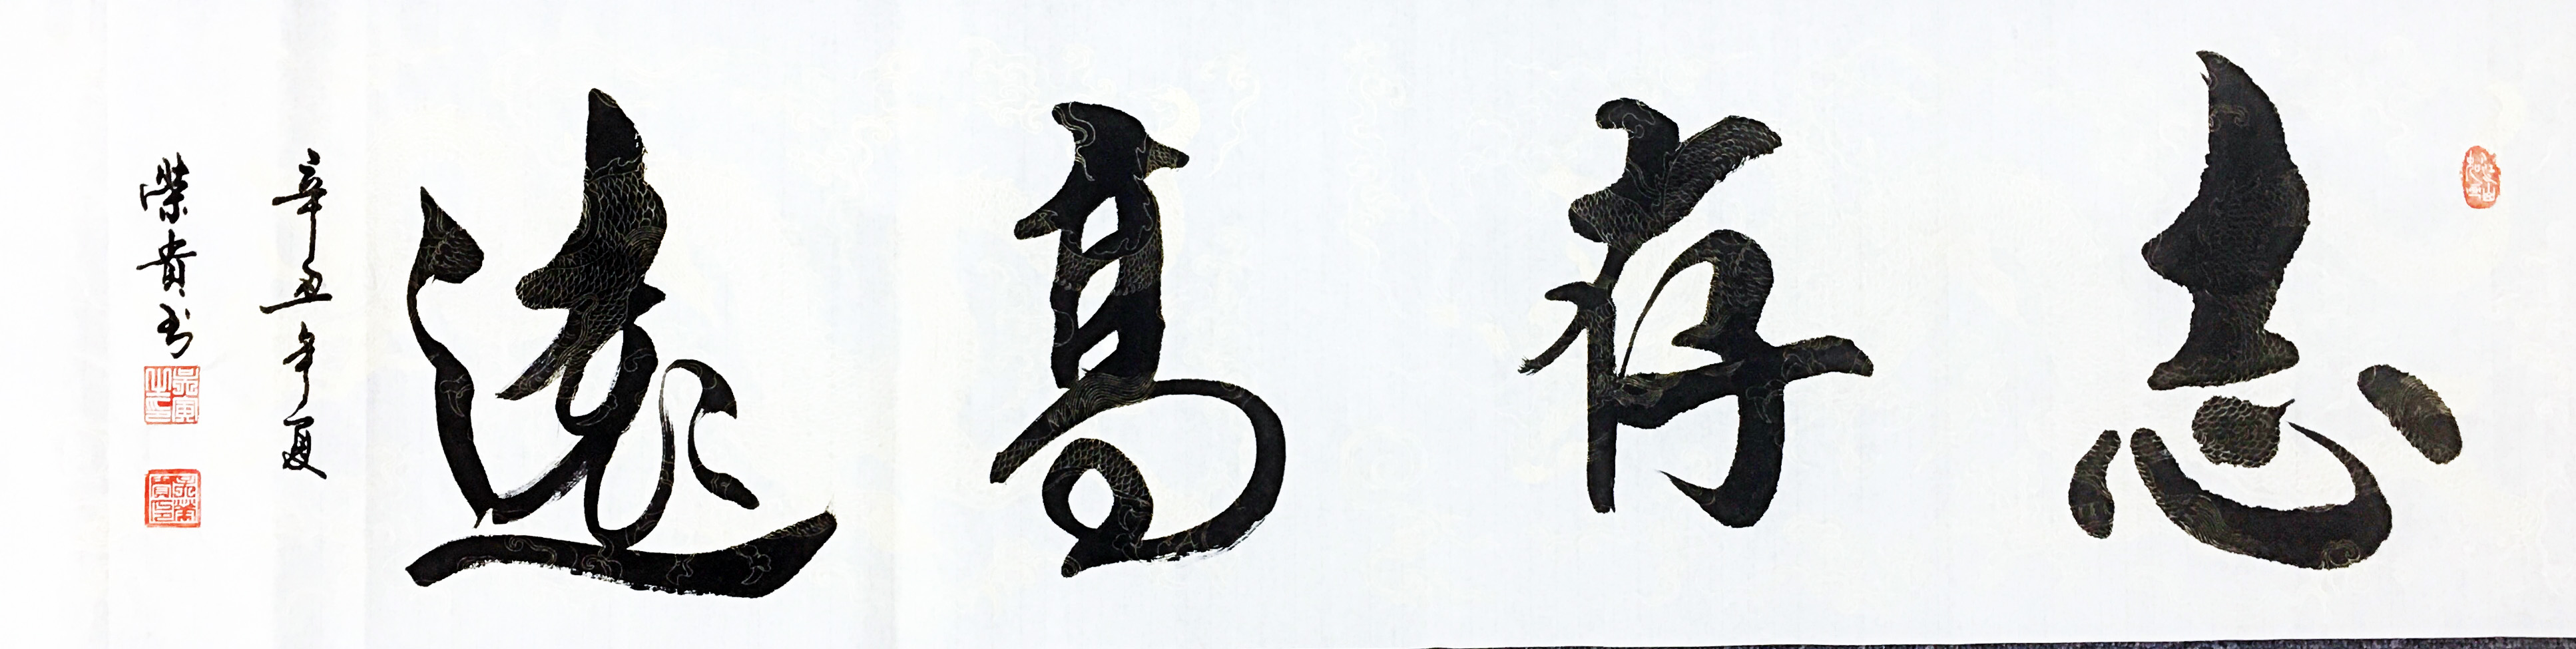 志存高遠
辛丑年夏
榮貴书